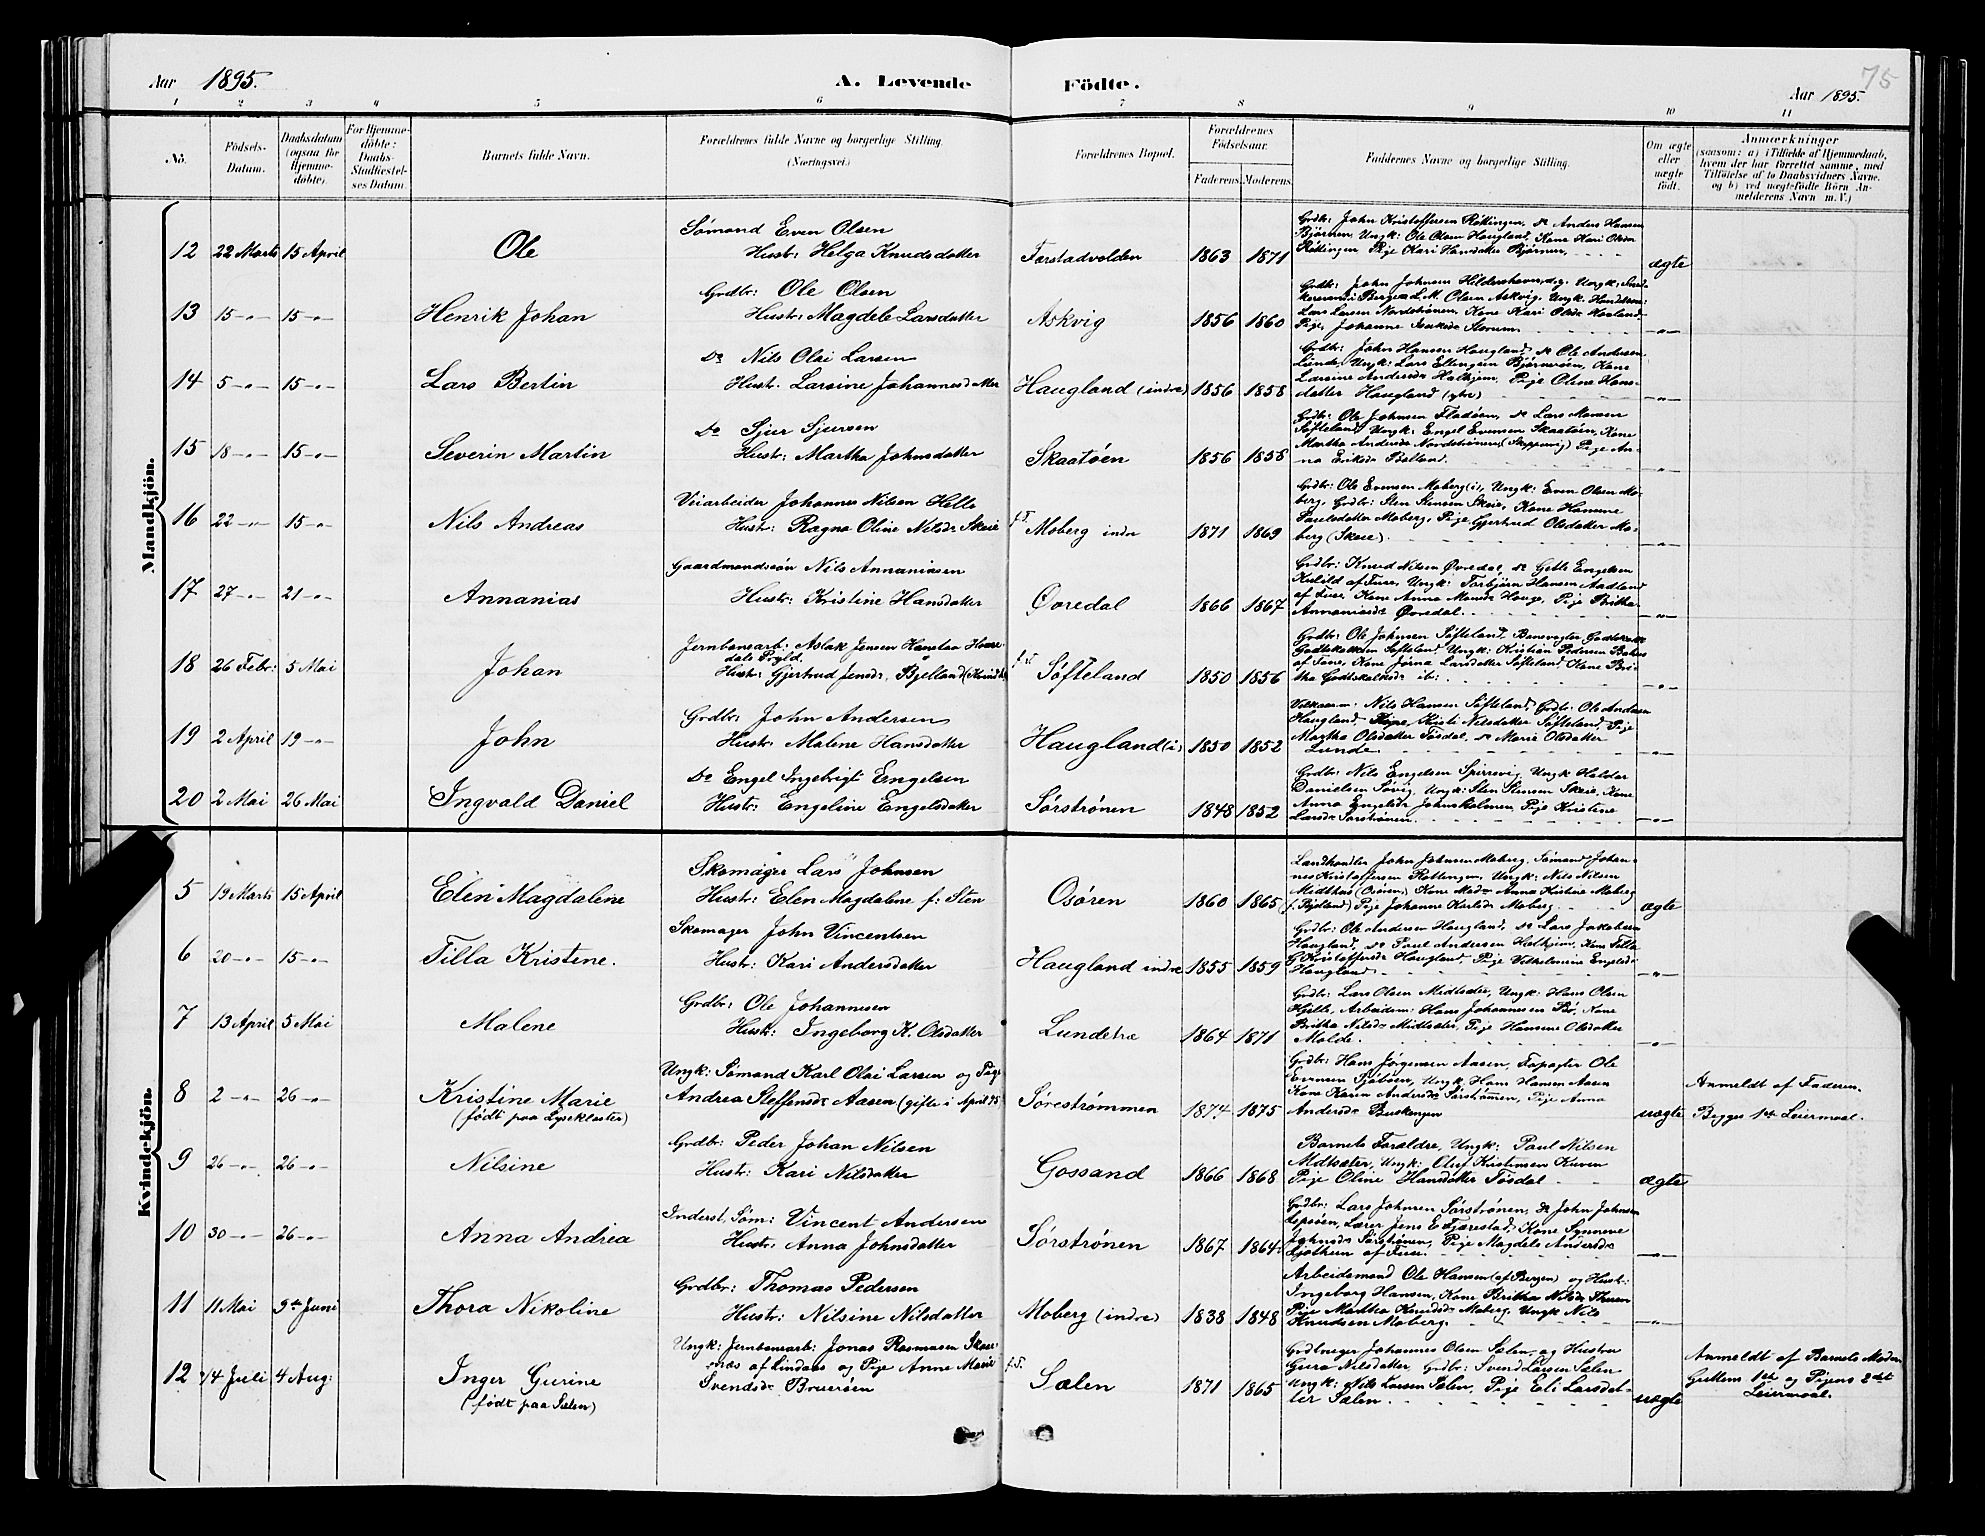 75
Aar 1895. A. Levende Födte. Aar 1895.
1 2 3 4 5 6 7 8 9 10 11
No. Födsels-Datum. Daabsdatum (ogsaa for Hjemmedöbte). For Hjemmedöbte: Daabs-Stadfæstelses Datum. Barnets fulde Navn. Forældrenes fulde Navne og borgerlige Stilling. (Næringsvei.) Forældrenes Bopæl. Forældrenes Födselsaar. Faderens. Moderens. Faddernes Navne og borgerlige Stilling. Om ægte eller uægte födt. Anmærkninger (saasom: a) i Tilfælde af Hjemmedaab, hvem der har forrettet samme, med Tilföielse af to Daabsvidners Navne, og b) ved uægtefödte Börn Anmelderens Navn m. V.)
Mandkjön.
12 22 Marts 15 April Ole
Sømand Even Olsen
Hustr: Helga Knudsdatter
Førstadvolden 1863 1871
Grdbr: John Kristoffersen Røttingen, do Anders Hansen
Bjørnen, Ungk: Ole Olsen Haugland, Kone Kari Olsdr
Røttingen Pige Kari Hansdatter Bjørnen
ægte
13 15 -"- 15 -"- Henrik Johan
Grdbr: Ole Olsen
Hustr: Magdele Larsdatter
Askvig 1856 1860
Grdbr: John Johnsen Hildershavn
Lars Larsen Nordstrønen, Kone Kari Olsdr
Pige, Johanne
-"-
14 5 -"- 15 -"- Lars Bertin
Do Nils Olai Larsen
Hustr. Larsine Johannesdatter
Haugland (indre) 1856 1858
Grdbr: John Hansen Haugland, do Ole Andersen
Lunde, Ungk: Lars Ellingsen Bjørnøen, Kone
Larsine Andersdr Halhjem, Pige Oline Hans-
datter Haugland (ytre)
-"-
15 18 -"- 15 -"- Severin Martin
Do Sjur Sjursen
Hustr: Martha Johnsdatter
Skaatøen 1856 1858
Grdbr: Ole Johnsen Fladøen, do Lars Monsen
Søfteland, Ungk: Engel Evensen Skaatøen, Kone
Martha Andersdr Nordstrønen, Pige An-
na Eriksdr
-"-
16 22 -"- 15 -"- Nils Andreas
Veiarbeider Johannes Nilsen Helle
Hustr: Ragna Oline Nilsdr Skeie
f.T. Moberg indre 1871 1869
Grdbr: Ole Evensen Moberg (i), Ungk: Even Olsen Mo-
berg, Grdbr: Sten Stensen Skeie, Kone Hansine
Moberg, Pige Gjertrud Olsdatter Mo-
berg (Skeie)
-"-
17 27 -"- 21 -"- Annanias
Gaardmandssøn Nils Annaniasen
Hustr: Kristine Hansdatter
Øvredal 1866 1867
Grdbr: Knud Nilsen Øvredal, do Gitle Engelsen
Kulild af Fuse, Ungk: Torbjørn Hansen Aadland
af Fuse, Kone Anna Monsdr Hauge, Pige Britha
Annaniasdr Øvredal
-"-
18 26 Febr: 5 Mai Johan
Jernbanearb: Aslak Jensen
Hustr: Gjertrud Jensdr, Bjelland
f.t. Søfteland 1850 1856
Grdbr: Ole Johnsen Søfteland, Banevogter
Godtskalksen Søfteland Ungk: Kristian Pedersen
af Fuse, Kone Jorna Larsdatter Søfteland Kone Bri-
tha Godtskalksdr ib:
-"-
19 2 April 19 -"- John
Grdbr: John Andersen
Hustr: Malene Hansdatter
Haugland (i) 1850 1852
Nils Hansen Søfteland, Grdbr: Ole Andersen
Haugland, Kristi Nilsdatter Søfteland, Pige
Martha Olsdatter Tøsdal, do Marie Olsdatter
Lunde
-"-
20 2 Mai 26 Mai Ingvald Daniel
Do Engel Ingebrigt Engelsen
Hustr: Engeline Engelsdatter
Sørstrønen 1848 1852
Grdbr: Nils Engelsen Spirrevig, Ungk Haldor
Danielsen Søvig, Ungk: Sten Stensen Skeie, Kone
Anna Engelsdr Johnsholmen, Pige Kristine
Larsdr Sørstrønen
-"-
Kvindekjön.
5 19 Marts 15 April Elen Magdalene
Skomager Lars Johnsen
Hustr: Elen Magdalene f: Sten
Osøren 1860 1865
Landhandler John Johnsen Moberg, Sømand Johan-
nes Kristoffersen Røttingen, Ungk: Nils Nilsen
Midthus (Osøren), Kone Anna Kristine Moberg
Pige Johanne Moberg
ægte
6 20 -"- 15 -"- Tilla Kristene.
Skomager John Vincentsen
Hustr: Kari Andersdatter
Haugland indre 1855 1859
Grdbr: Ole Andersen Haugland, do Lars Jakobsen
Haugland, do Paul Andersen Halhjem, Kone Tilla
Kristoffersdr Haugland, Pige Vilhelmine Engelsdr
Haugland
-"-
7 13 April 5 Mai Malene
Grdbr: Ole Johannesen
Hustr: Ingeborg K. Olsdatter
Lundetræ 1864 1871
Grdbr: Lars Olsen Midtsæter, Ungk: Hans Olsen
Hjelle, Arbeidsm: Hans Johannesen Bø, Kone
Britha Nilsdr Midtsæter, Pige Hansine Olsdatter
Molde.
-"-
8 2 -"- 26 -"- Kristine Marie
(født paa Lysekloster)
Ungk: Sømand Karl Olai Larsen og Pige
Andrea Steffensdr Aasen (gifte i April 95)
Sørestrømmen 1874 1875
Grdbr: Hans Jørgensen Aasen, Ole
Evensen Sjøbøen, Ungk: Hans Hansen Aasen
Kone Karen Andersdr Sørstrømmen, Pige Anna
Andersdr Buskangen
uægte
Anmeldt af Faderen.
Begges 1ste Leiermaal.
9 26 -"- 26 -"- Nilsine
Grdbr: Peder Johan Nilsen
Hustr: Kari Nilsdatter
Gossand 1866 1868
Barnets Forældre, Ungk: Paul Nilsen
Midtsæter, Ungk: Oluf Kristensen Kuven
Pige Oline Hansdatter Tøsdal
ægte
10 30 -"- 26 -"- Anna Andrea
Inderst, Søm: Vincent Andersen
Hustr: Anna Johnsdatter
Sørstrønen 1867 1864
Grdbr: Lars Johnsen Sørstrønen, do John Johnsen
Lepsøen, Lærer Jens E Fjærestad, Kone Synneve
Johnsdr Sørstrønen, Pige Magdele Andersdr
af Fuse
-"-
11 11 Mai 9de Juni Thora Nikoline
Grdbr: Thomas Pedersen
Hustr: Nilsine Nilsdatter
Moberg (indre) 1838 1848
Arbeidsmand Ole Hansen (af Bergen) og Hustr:
Ingeborg Hansen, Kone Britha Nilsdr
Pige Martha Knudsdr Moberg, Ungk Nils
Knudsen Moberg.
-"-
12 14 Juli 4 Aug: Inger Gurine
(født paa Sælen)
Ungk: Jernbanearb: Jonas Rasmussen Skeie
af Lindaas og Pige Anne Marie
Svendsdr Bruerøen
f.T. Sælen 1871 1865
Johannes Olsen Sælen og Hustru
Guro Nilsdatter, Grdbr: Svend Larsen Sælen
Ungk: Nils Larsen Sælen, Pige Eli Larsdat-
ter Sælen
uægte
Anmeldt af Barnets Moder
Guttens 1ste og Pigens 2det
Leiermaal.